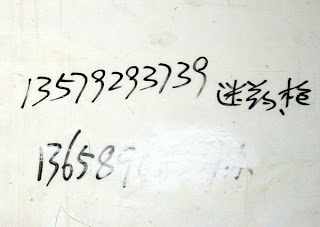 13579293739 迷幻枪
136589